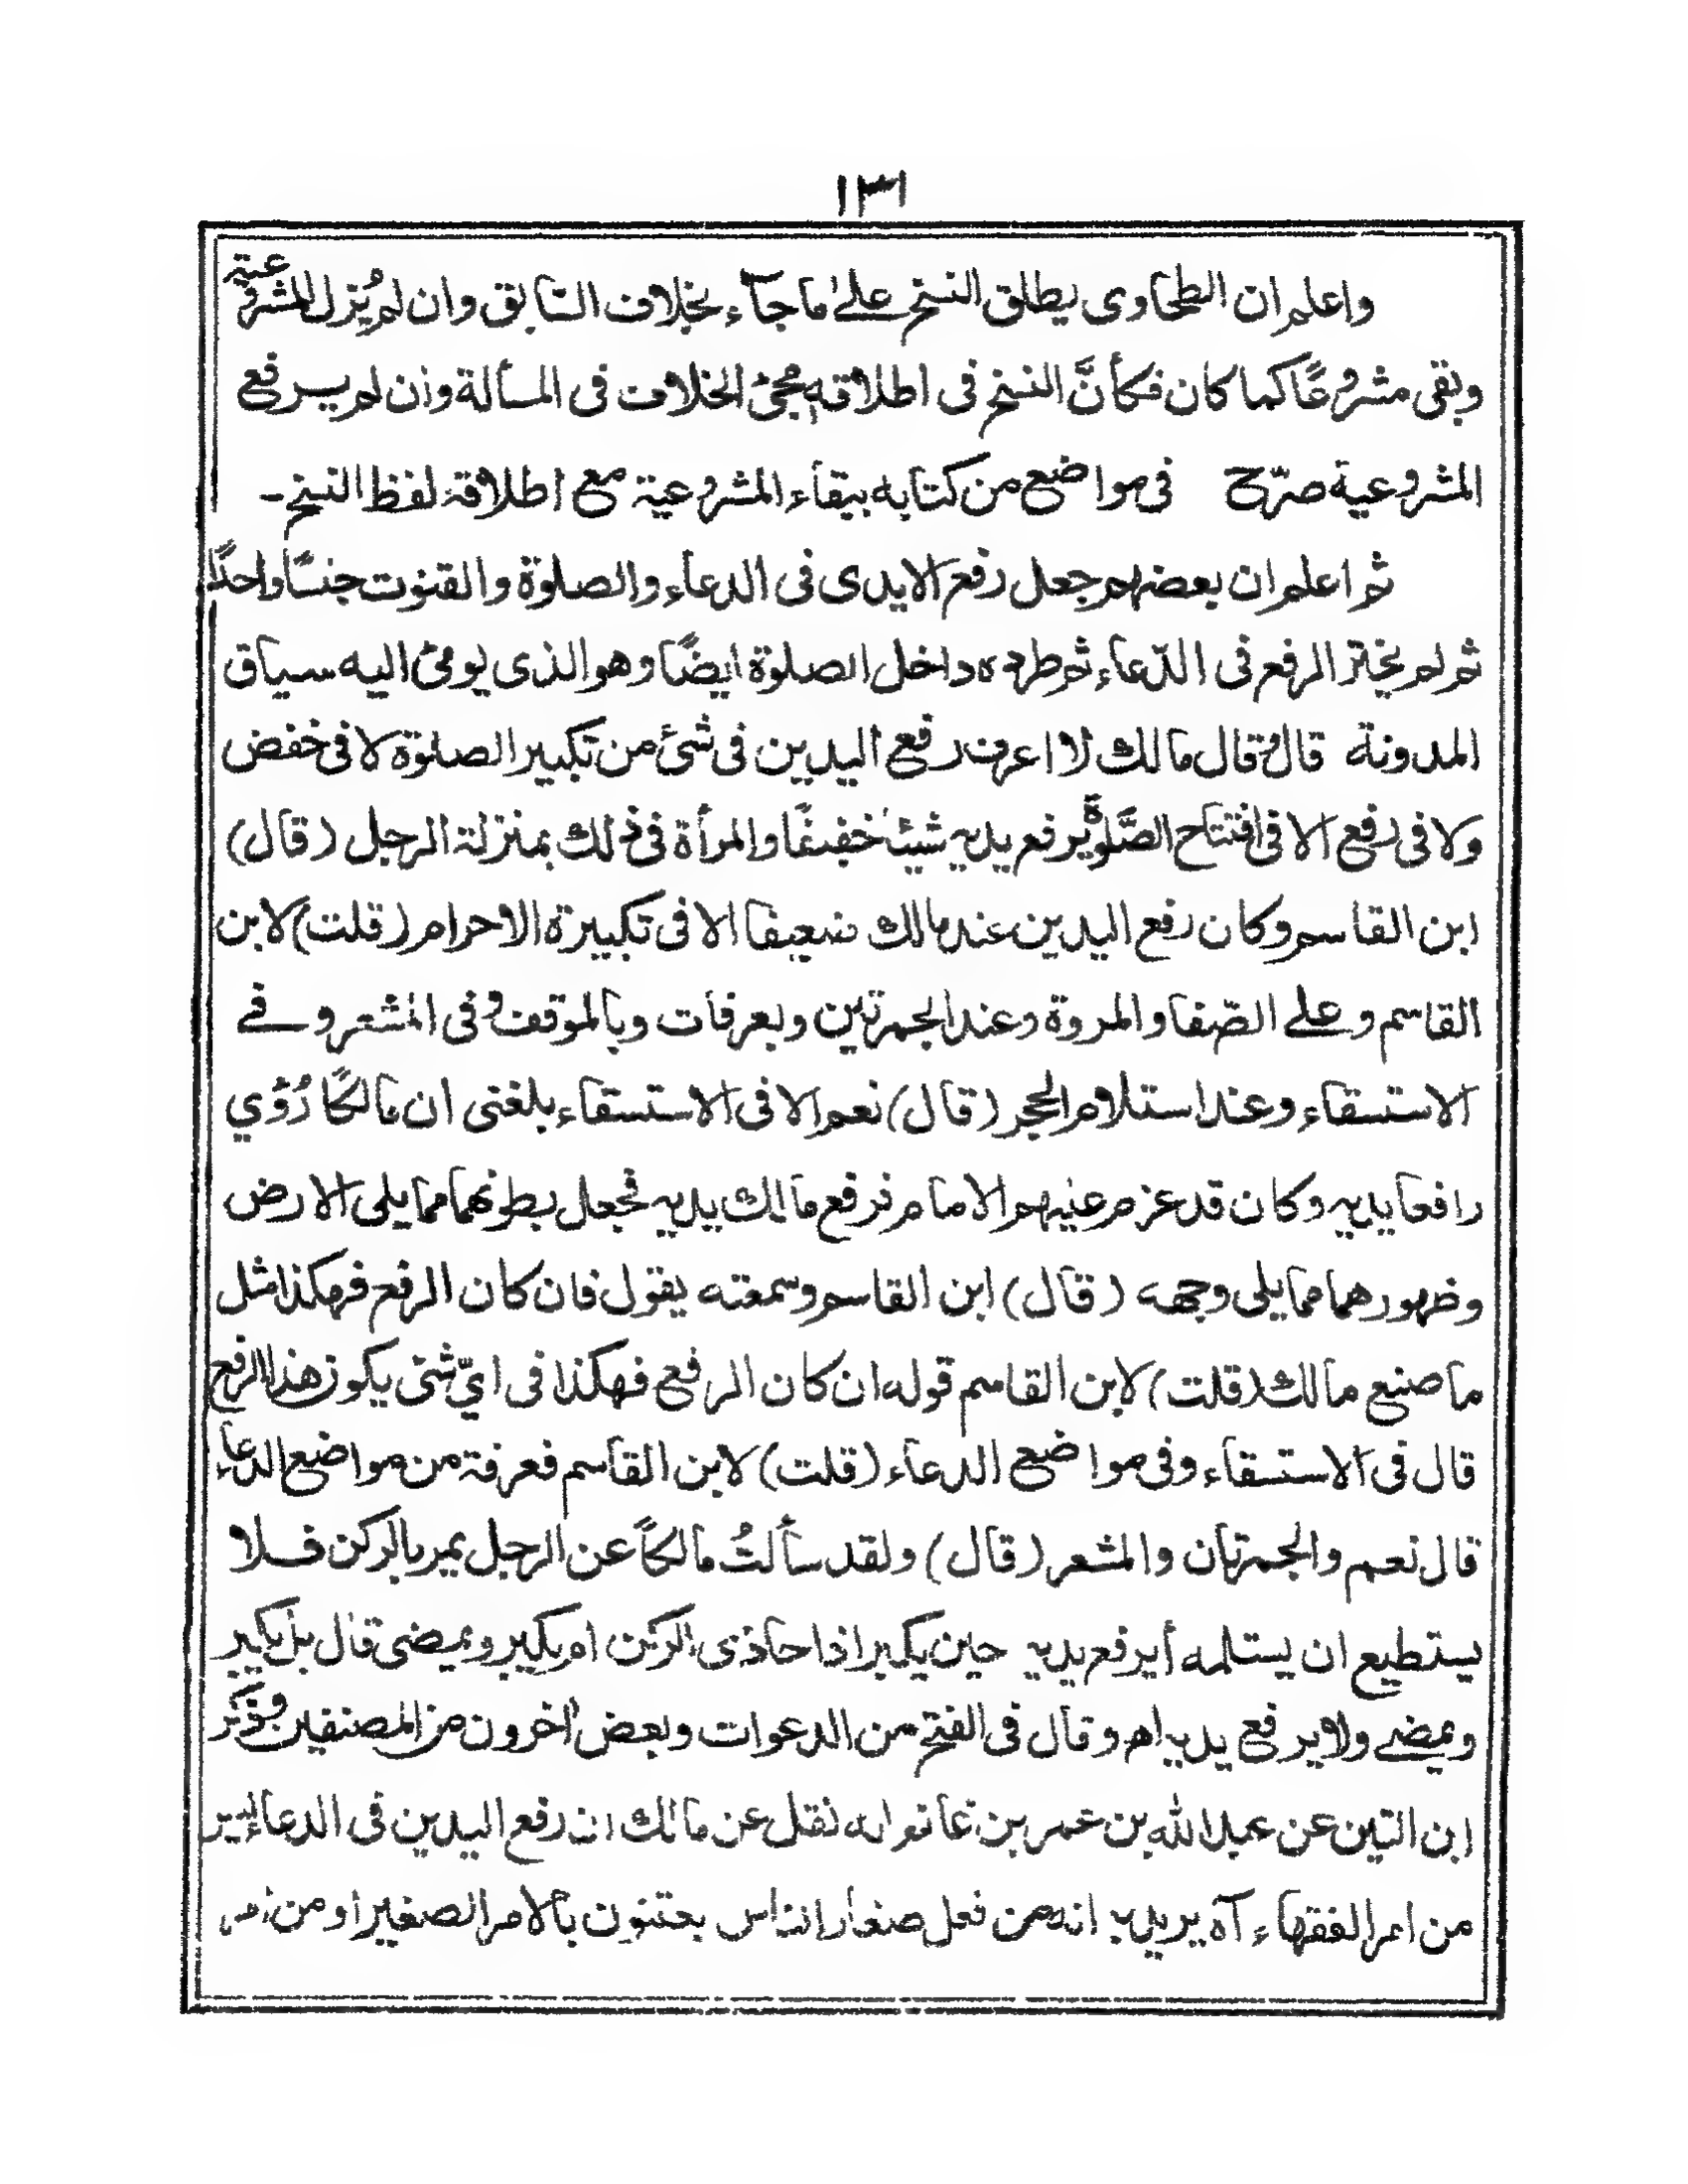 ١٣١
واعلم ان الطحاوى يطلق النسخ على ما جاء بخلاف السابق وان لم يُزل المشروعية
وبقى مشروعًا كما كان فكأنَّ النسخ فى اطلاقه مجئ الخلاف فى المسألة وان لم يرفع
المشروعية صرّح فى مواضع من كتابه ببقاء المشروعية مع اطلاقه لفظ النسخ ـ
ثم اعلم ان بعضهم جعل رفع الايدى فى الدعاء والصلوة والقنوت جنسًا واحدًا
ثم لم يختر الرفع فى الدّعاء ثم طرده داخل الصلوة ايضًا وهو الذى يومئ اليه سياق
المدونة قال وقال مالك لا اعرف رفع اليدين فى شئ من تكبير الصلوة لا فى خفض
ولا فى رفع الا فى افتتاح الصَّلوةِ يرفع يديه شيئا خفيفًا والمرأة فى ذلك بمنزلة الرجل (قال)
ابن القاسم وكان رفع اليدين عند مالك ضعيفا الا فى تكبيرة الاحرام (قلت) لابن
القاسم وعلى الصّفا والمروة وعند الجمرتين وبعرفات وبالموقف وفى المشعر وفى
الاستسقاء وعند استلام الحجر (قال) نعم الا فى الاستسقاء بلغنى ان مالكًا رُؤي
رافعا يديه وكان قد عزم عليهم الامام فرفع مالك يديه فجعل بطونهما مما يلى الارض
وظهورهما مما يلى وجهه (قال) ابن القاسم وسمعته يقول فان كان الرفع فهكذا مثل
ما صنع مالك (قلت) لابن القاسم قوله ان كان الرفع فهكذا فى ايّ شئ يكون هذا الرفع
قال فى الاستسقاء وفى مواضع الدعاء (قلت) لابن القاسم فعرفة من مواضع الدعاء
قال نعم والجمرتان والمشعر (قال) ولقد سألتُ مالكاً عن الرجل يمر بالركن فلا
يستطيع ان يستلمه أيرفع يديه حين يكبر اذا حاذى الركن ام يكبر ويمضى قال بل يكبر
ويمضى ولا يرفع يديه اه وقال فى الفتح من الدعوات وبعض اخرون من المصنفين وذكر
ابن التين عن عبد الله بن عمر بن غانم انه نقل عن مالك ان رفع اليدين فى الدعاء ليس
من امر الفقهاء آه يريد به انه من فعل صغار الناس يعتنون بالامر الصغير او من